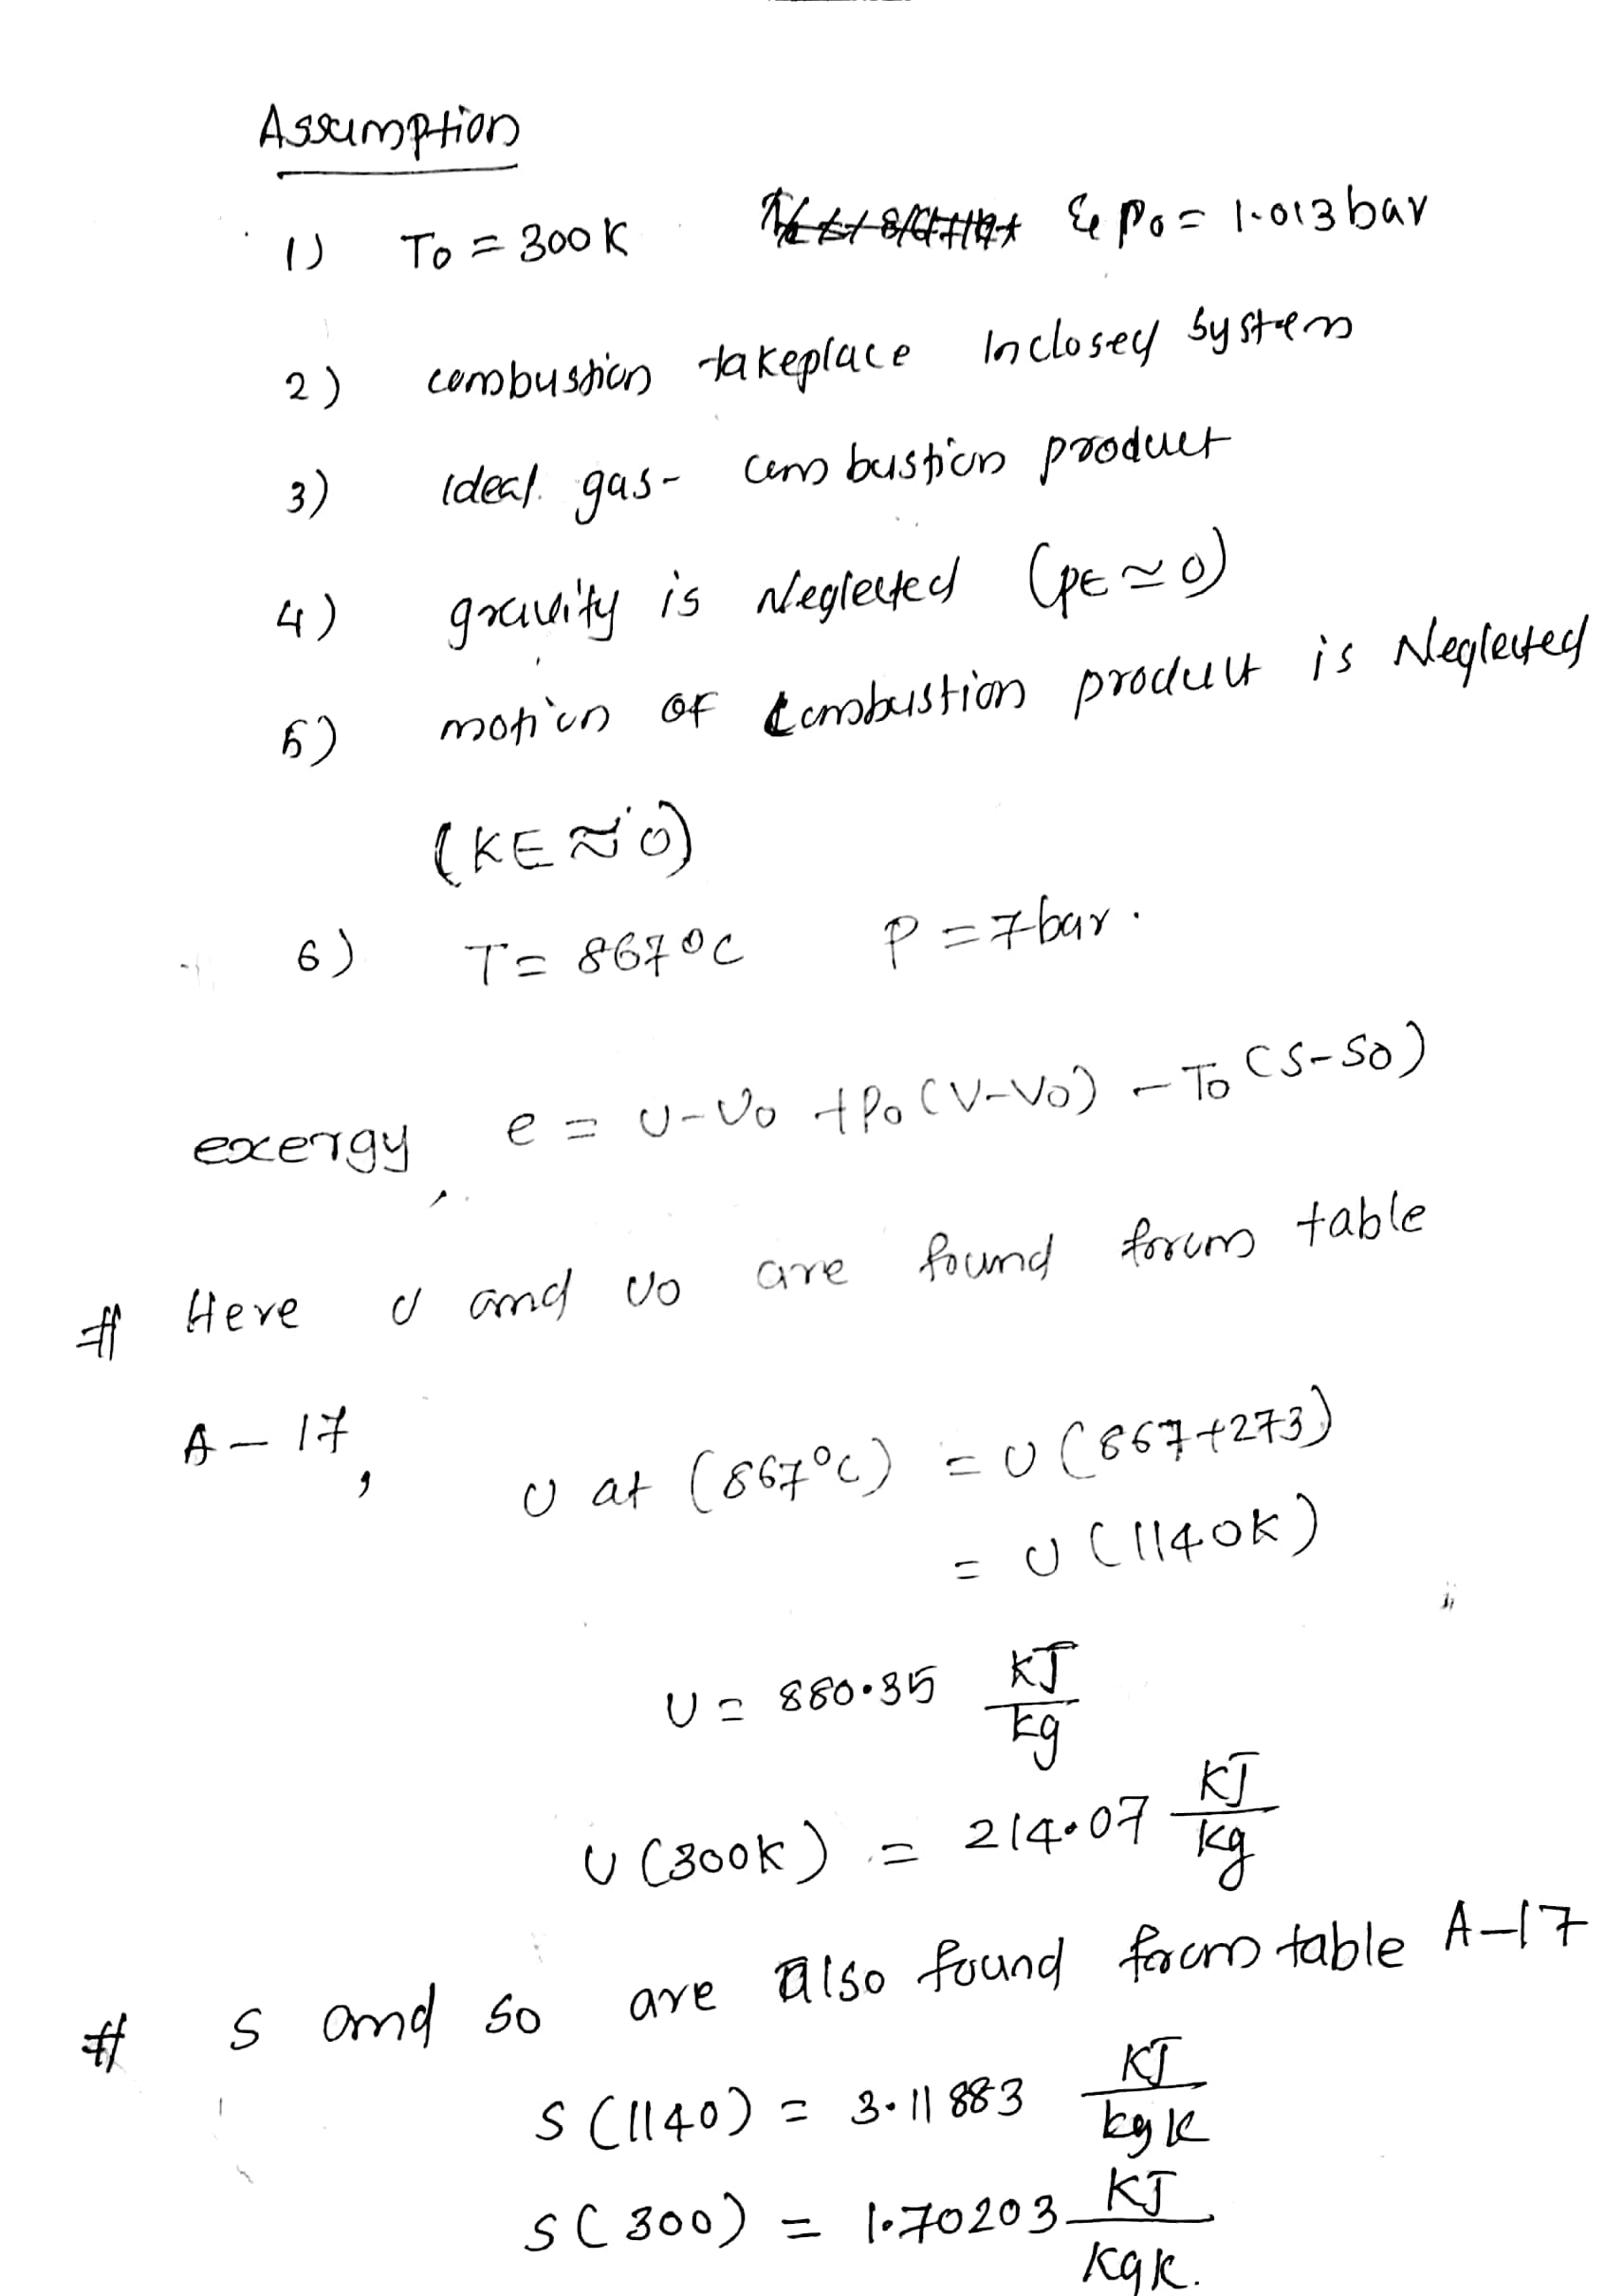 Assumption
1) T0 = 300K & P0 = 1.013 bar
2) combustion takeplace Inclosed system
3) ideal gas - combustion product
4) gravity is Neglected (PE ≃ 0)
5) motion of combustion product is Neglected
(KE ≈ 0)
6) T = 867°C P = 7 bar.
exergy, e = U - U0 + P0 (V - V0) - T0 (S - S0)
# Here U and U0 are found from table
A - 17, U at (867°C) = U (867 + 273)
= U (1140K)
U = 880.35 KJ/kg
U (300K) = 214.07 KJ/kg
# S and S0 are also found from table A-17
S (1140) = 3.11883 KJ/kgK
S (300) = 1.70203 KJ/KgK.